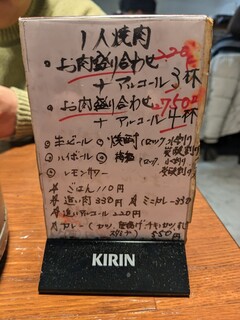 1人焼肉
お肉盛り合わせ
+ アルコール 3杯
お肉盛り合わせ 1750
+ アルコール 4杯
生ビール 焼酎(ロック、水割り
ハイボール 梅酒(ロック、水割り
レモンサワー 炭酸割り)
ごはん 110円
追い肉 330円 ミニカレー 330
追いアルコール 220円
カレー(カツ、唐揚げ
550円
KIRIN